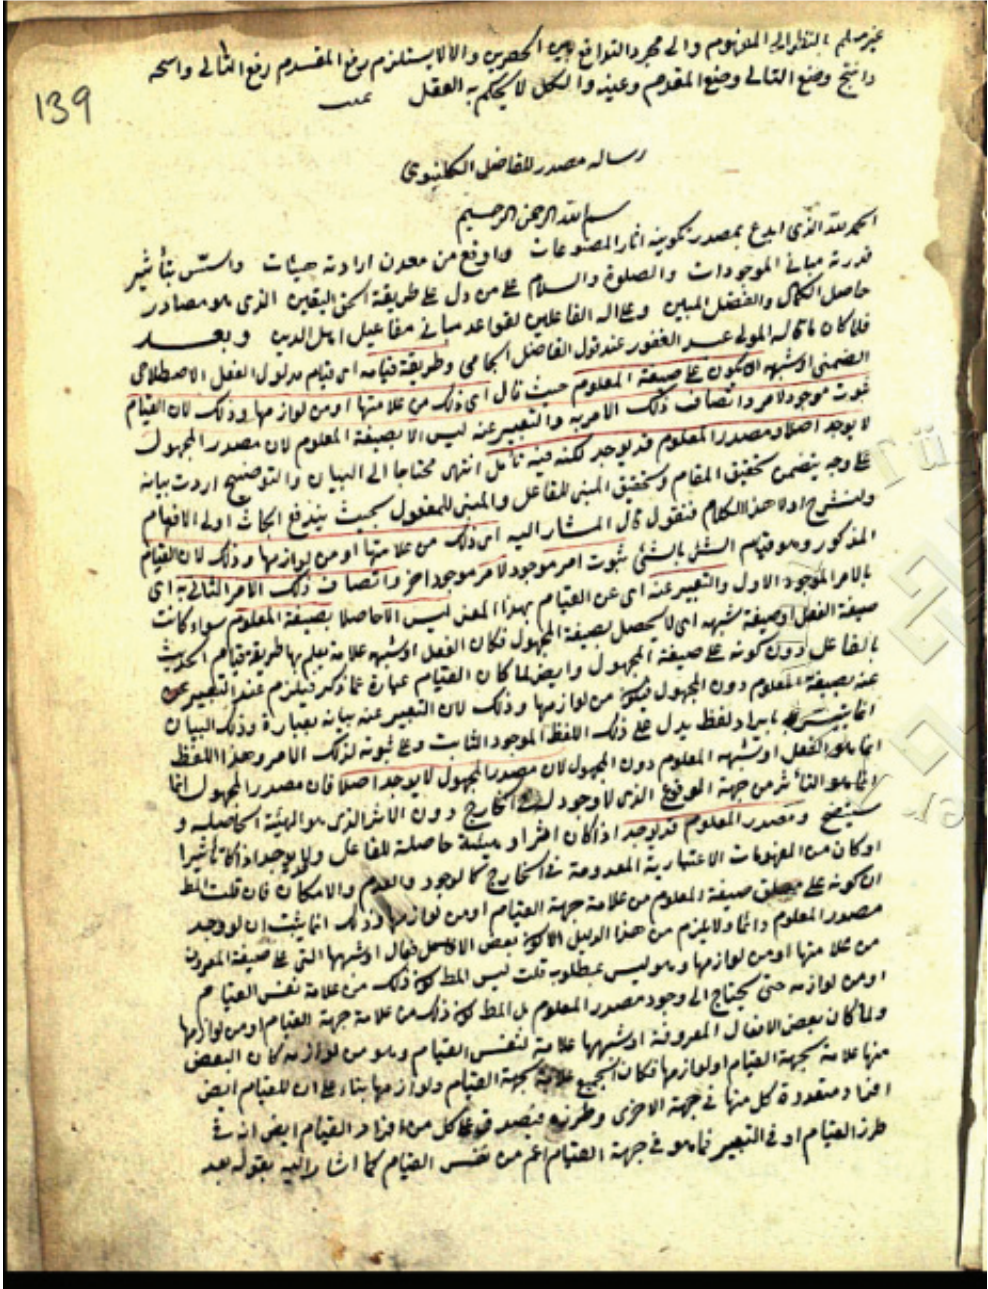 غير مسلم بالنظر الى المفهوم والى مجرد التوافق بين الحصرين والا لا يستلزم رفع المقدم رفع التالي واسحه
وانتج وضع التالي وضع المقدم وعينه والكل لا يحكم به العقل
139
رساله مصدر للفاضل الكلنبوي
بسم الله الرحمن الرحيم
الحمد لله الذي ابدع بمصدر تكوينه اثار المصنوعات واوقع من معدن ارادته حيثات واسّس بتأثير
قدرته مباني الموجودات والصلوة والسلام على من دل على طريقة الحق اليقين الذي هو مصادر
حاصل الكمال والفضل المبين وعلى اله الفاعلين لقواعد مباني مفاعيل اهل الدين وبعد
فلما كان ما قاله المولى عبد الغفور عند قول الفاضل الجامي وطريقة قيامه اى قيام مدلول الفعل الاصطلاحي
الضمنى او شبهه ان يكون على صيغة المعلوم حيث قال اى ذلك من علامتها او من لوازمها وذلك لان القيام
ثبوت موجود لامر واتصاف ذلك الامر به والتعبير عنه ليس الا بصيغة المعلوم لان مصدر المجهول
لا يوجد اصلا ومصدر المعلوم قد يوجد لكنه فيه تأمل انتهى محتاجا الى البيان والتوضيح اردت بيانه
على وجه يتضمن تحقيق المقام وتحقيق المبني للفاعل والمبني للمفعول بحيث يندفع ابحاث اولى الافهام
ولنشرح اولا هذا الكلام فنقول قال المشار اليه اى ذلك من علامتها او من لوازمها وذلك لان القيام
المذكور وهو قيام الشئ بالشئ ثبوت امر موجود لامر موجود اخر واتصاف ذلك الامر الثاني به اى
بالامر الموجود الاول والتعبير عنه اى عن القيام بهذا المعنى ليس الا حاصلا بصيغة المعلوم سواء كانت
صيغة الفعل او صيغة شبهه اى لا يحصل بصيغة المجهول فكان الفعل او شبهه علامة يعلم بها طريقة قيام الحدث
بالفاعل دون كونه على صيغة المجهول وايضا لما كان القيام عبارة عما ذكر فيلزم عند التعبير عن
عنه بصيغة المعلوم دون المجهول فيكون من لوازمها وذلك لان التعبير عنه بيانه بعبارة وذلك البيان
انما بايراد لفظ يدل على ذلك اللفظ الموجود الثابت وعلى ثبوته لذلك الامر وهذا اللفظ
انما هو الفعل او شبهه المعلوم دون المجهول لان مصدر المجهول لا يوجد اصلا فان مصدر المجهول انما
انما هو التأثر من جهة الوقوع الذي لا وجود له فى الخارج دون الاثر الذي هو الهيئة الحاصلة و
سيتضح ومصدر المعلوم قد يوجد اذا كان اثرا وهيئة حاصلة للفاعل ولا يوجد اذا كان تأثيرا
او كان من المفهومات الاعتبارية المعدومة في الخارج كالوجود والعدم والامكان فان قلت المط
ان كونه على مطلق صيغة المعلوم من علامة جهة القيام او من لوازمها وذلك انما يثبت ان لو وجد
مصدر المعلوم دائما ولا يلزم من هذا الدليل الا كون بعض الافعال او شبهها التي على صيغة المعروف
من علامتها او من لوازمها وهو ليس بمطلوب قلت ليس المط كون ذلك من علامة نفس القيام
او من لوازمه حتى يحتاج الى وجود مصدر المعلوم بل المط كون ذلك من علامة جهة القيام او من لوازمها
ولما كان بعض الافعال المعروفة او شبهها علامة لنفس القيام وهو من لوازمه كان البعض
منها علامة لجهة القيام او لوازمها فكان الجميع علامة لجهة القيام ولوازمها بناء على ان للقيام ايض
افراد متعددة كل منها في جهة الاخرى وطرزه فيصدق على كل من افراد القيام ايض انه في
طرز القيام او في التعبير فما هو في جهة القيام اعم من نفس القيام كما اشار اليه بقوله بعد